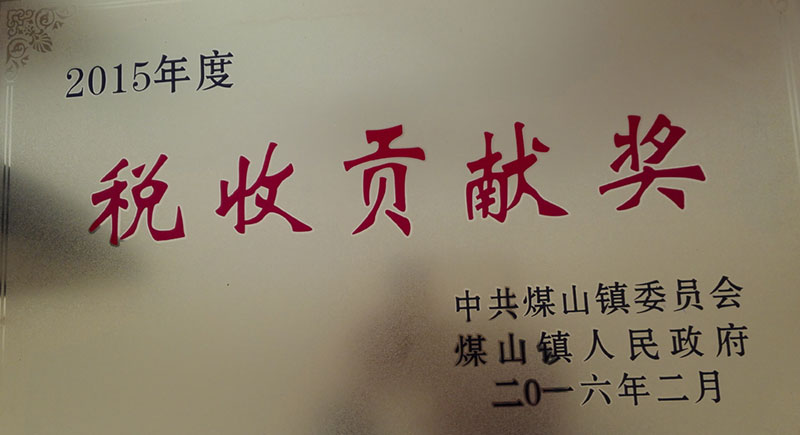 2015年度
税收贡献奖
中共煤山镇委员会
煤山镇人民政府
二0一六年二月